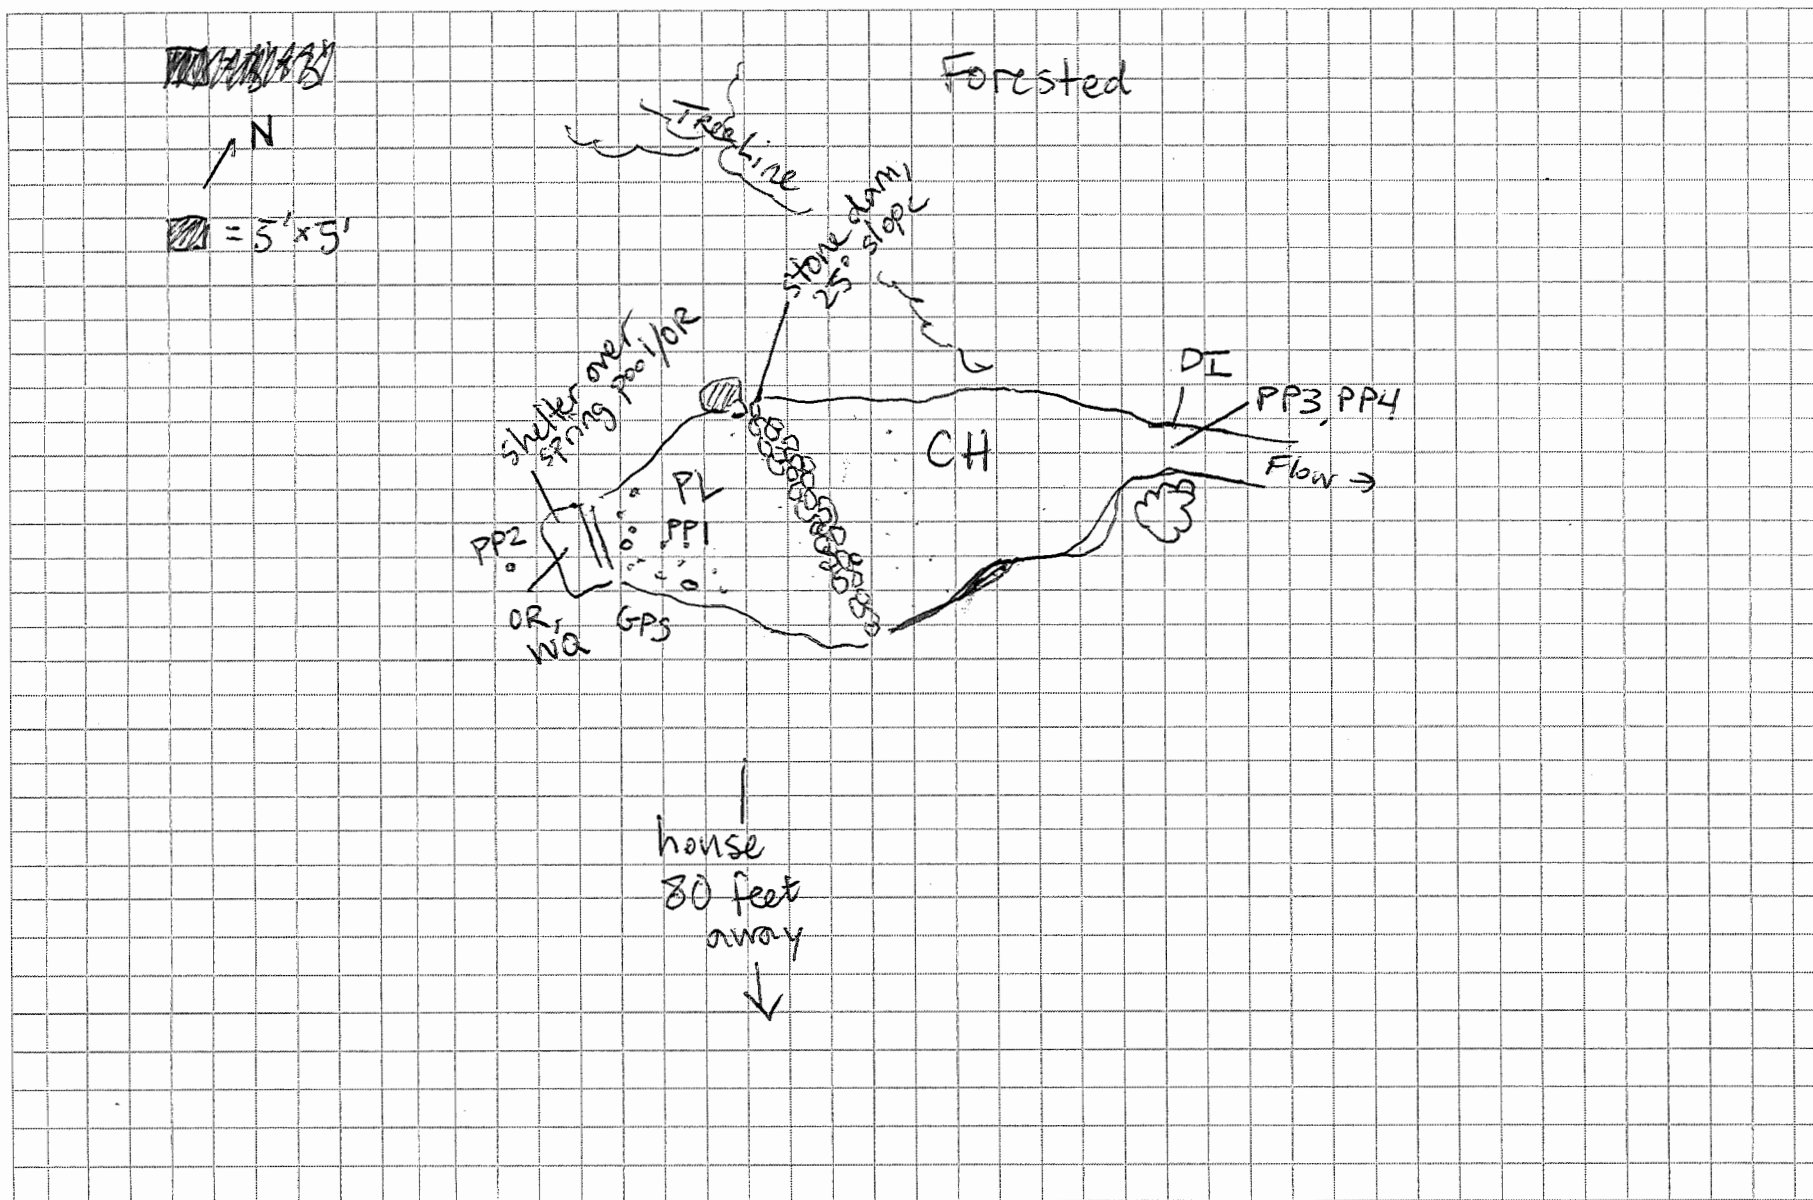 Forested
N
= 5'x5'
Tree Line
stone dam,
25° slope
shelter over
spring pool/OR
DI
PP3, PP4
CH
Flow →
PL
PP1
PP2
OR,
WQ
GPS
house
80 feet
away